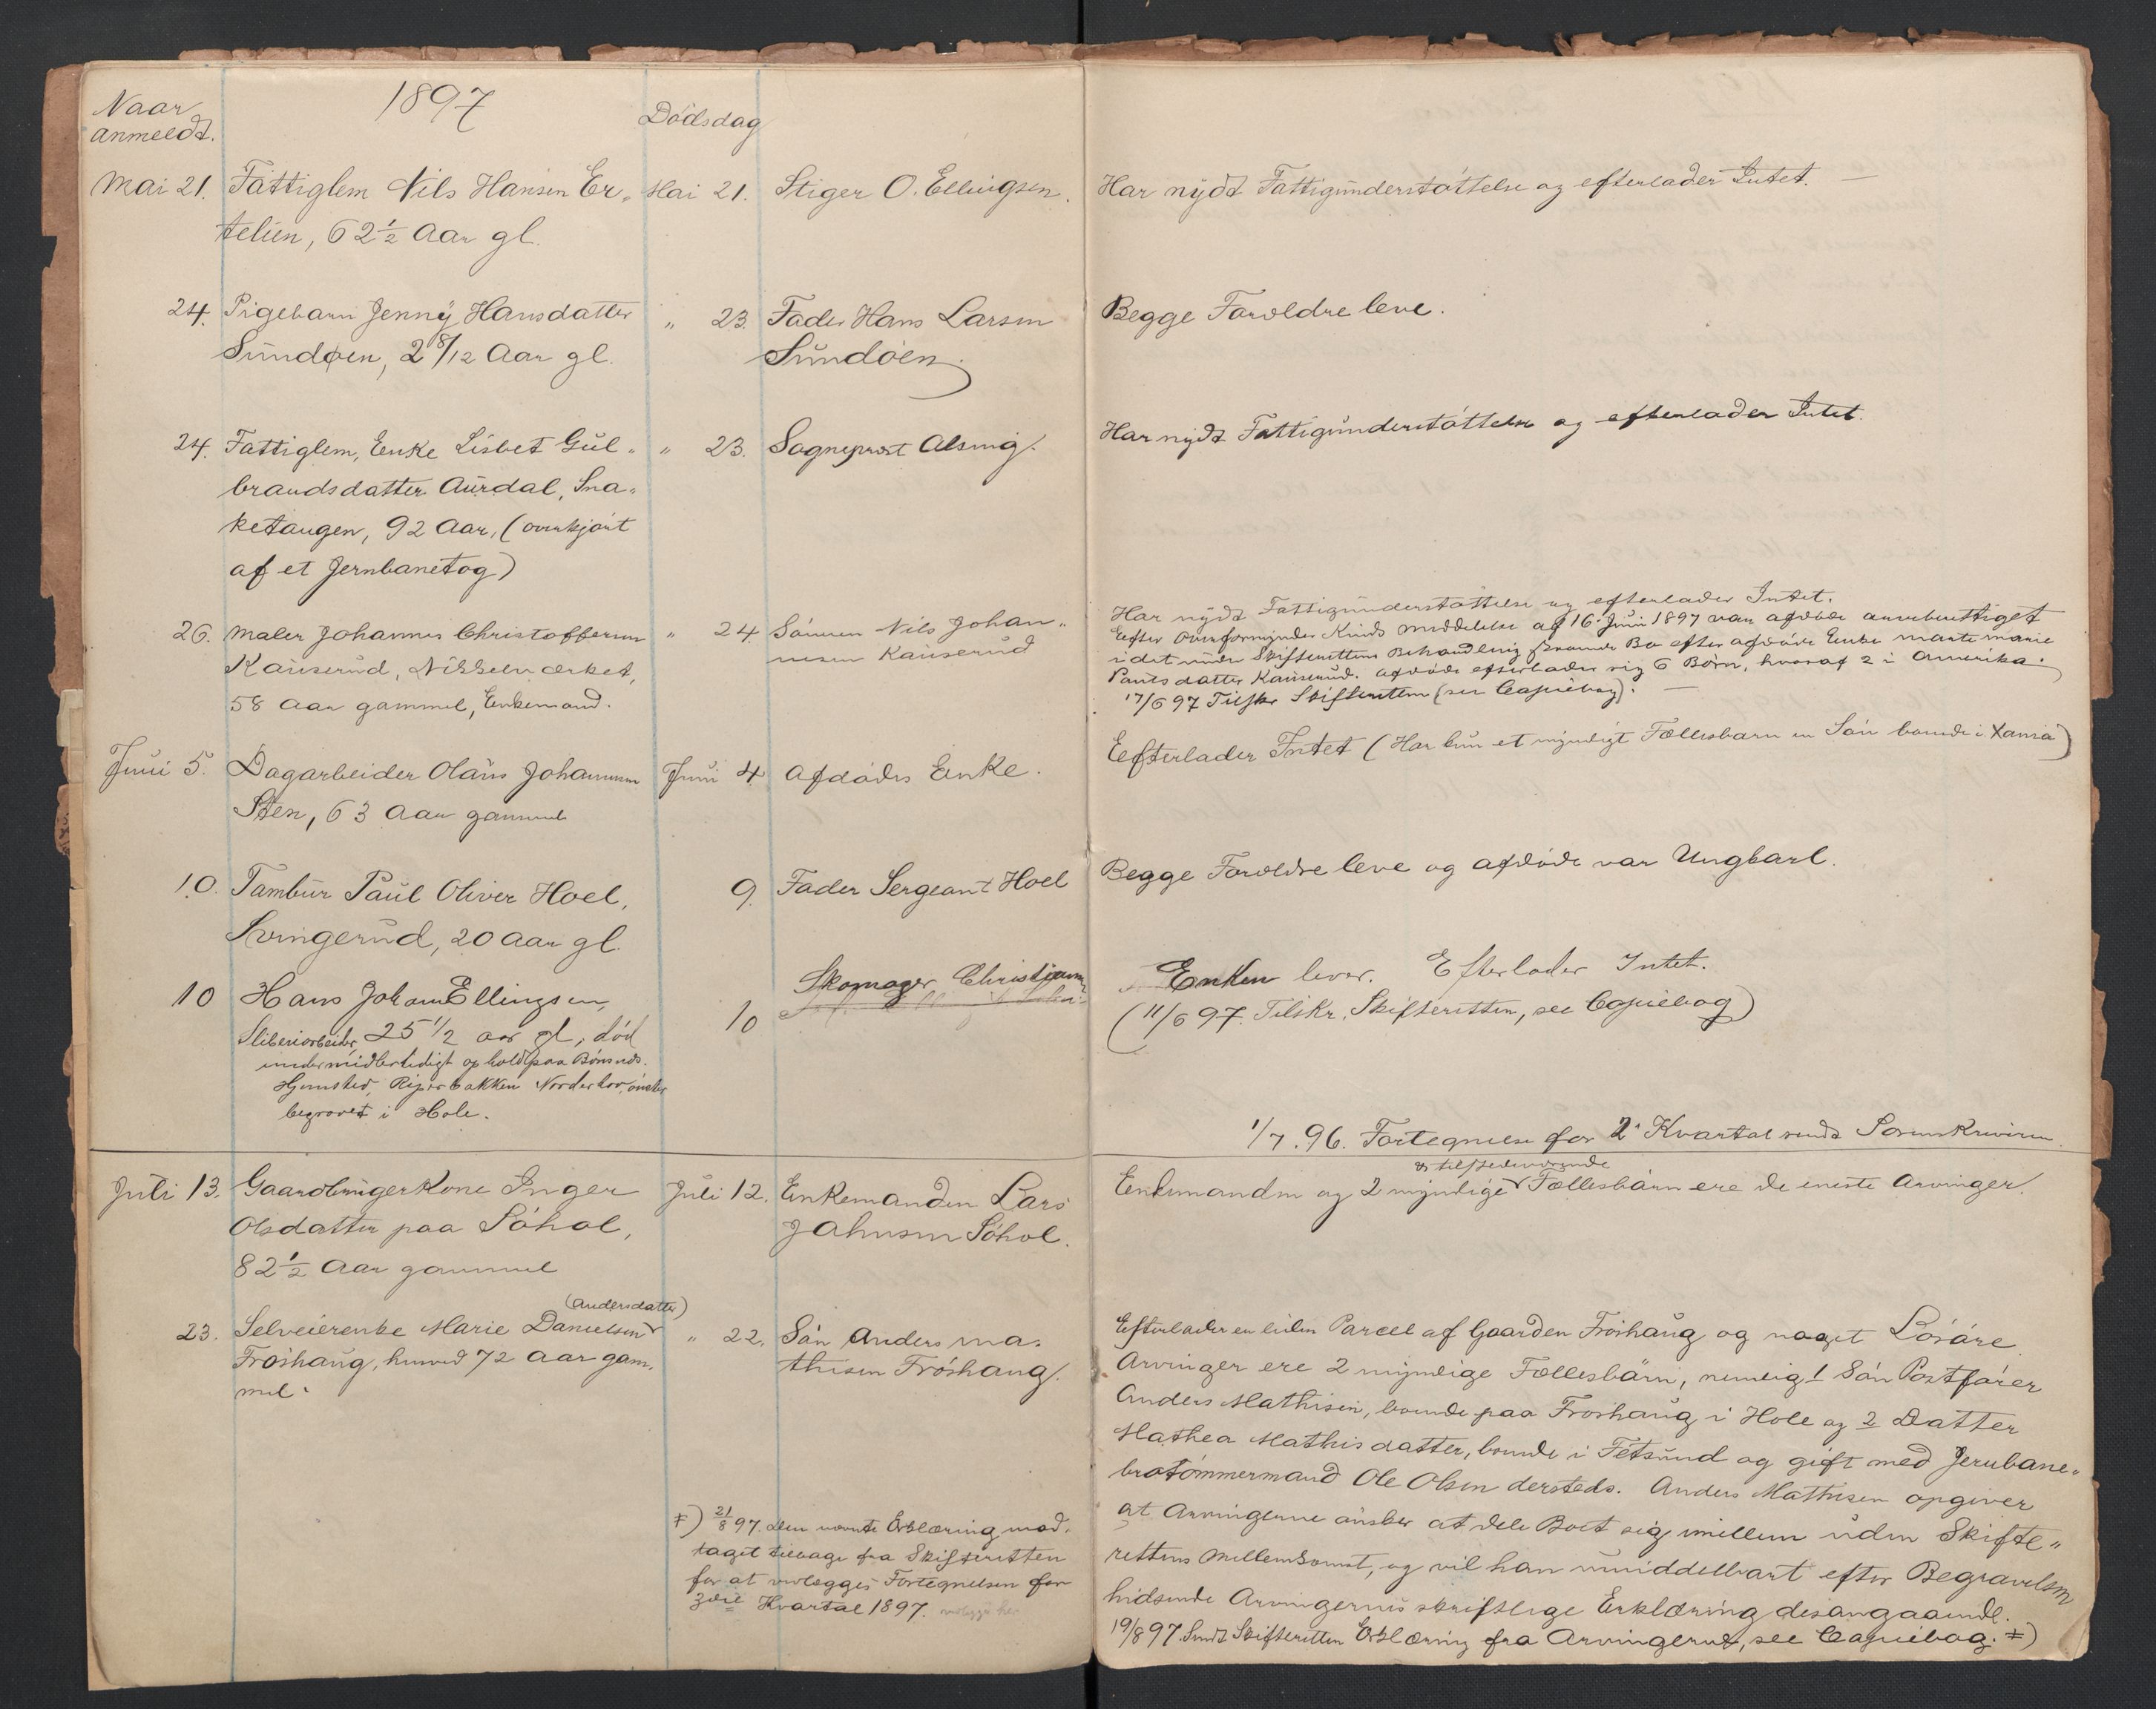 Naar
anmeldt.
1897
Dødsdag
Mai 21. Fattiglem Nils Hansen Er„ Mai 21. Stiger O. Ellingsen. Har nydt Fattigunderstøttelse og efterlader Intet. —
telien, 62½ Aar gl.
24. Pigebarn Jenny Hansdatter „ 23. Fader Hans Larsen Begge Forældre leve.
Sundøen, 2 8/12 Aar gl. Sundøen.
24. Fattiglem, Enke Lisbet Gul„ „ 23. Sogneprest Alsing. Har nydt Fattigunderstøttelse og efterlader Intet.
brandsdatter Aurdal, Sna„
ketangen, 92 Aar, (overkjørt
af et Jernbanetog)
26. Maler Johannes Christoffersen „ 24. Sønnen Nils Johan„
Kauserud, Nikkelværket, nesen Kauserud
58 Aar gammel, Enkemand.
Har nydt Fattigunderstøttelse og efterlader Intet.
Efter Overformynder Kinds Meddelelse af 16. Juni 1897 var afdøde arveberettiget
i det under Skifterettens Behandling staaende Bo efter afdøde Enke Marte Marie
Paulsdatter Kauserud. Afdøde efterlader sig 6 Børn, hvoraf 2 i Amerika.
17/6 97 Tilskr Skifteretten (see Copiebog). —
Juni 5. Dagarbeider Olaus Johannesen Juni 4. Afdødes Enke. Efterlader Intet (Har kun et myndigt Fællesbarn en Søn boende i Xania)
Sten, 63 Aar gammel
10. Tambur Paul Oliver Hoel, 9. Fader Sergeant Hoel Begge Forældre leve og afdøde var Ungkarl.
Svingerud, 20 Aar gl.
10 Hans Johan Ellingsen, 10 Skomager Christiansen Enken lever. Efterlader Intet.
Sliberiarbeider 25 1/2 aar gl, død (11/6 97. Tilskr. Skifteretten, see Copiebog)
under midlertidigt ophold paa Bønsnes.
Hjemsted, Ripersbakken Norderhov, ønskes
begravet i Hole.
1/7. 96. Fortegnelse for 2. Kvartal sendt Sorenskriveren.
Juli 13. Gaardbrugerkone Inger Juli 12. Enkemanden Lars Enkemanden og 2 myndige og tilstedeværende Fællesbørn ere de eneste Arvinger.
Olsdatter paa Søhol, Johnsen Søhol.
82½ Aar gammel
(Andersdatter)
23. Selveierenke Marie Danielsen „ 22. Søn Anders Ma„
Frøshaug, henved 72 Aar gam„ thisen Frøshaug.
mel.
Efterlader en liden Parcel af Gaarden Frøshaug og noget Løsøre.
Arvinger ere 2 myndige Fællesbørn, nemlig 1 Søn Postfører
Anders Mathisen, boende paa Frøshaug i Hole og 2 Datter
Mathea Mathisdatter, boende i Fetsund og gift med Jernbane„
brotømmermand Ole Olsen dersteds. Anders Mathisen opgiver
at Arvingerne ønsker at dele Boet sig imellem uden Skifte„
rettens Mellemkomst, og vil han umiddelbart efter Begravelsen
hidsende Arvingernes skriftlige Erklæring desangaaende.
19/8 97. Sendt Skifteretten Erklæring fra Arvingerne, see Copiebog. ≠)
≠) 21/8 97. Den nævnte Erklæring mod„
taget tilbage fra Skifteretten
for at vedlægges Fortegnelsen for
3die Kvartal 1897. vedlagt her